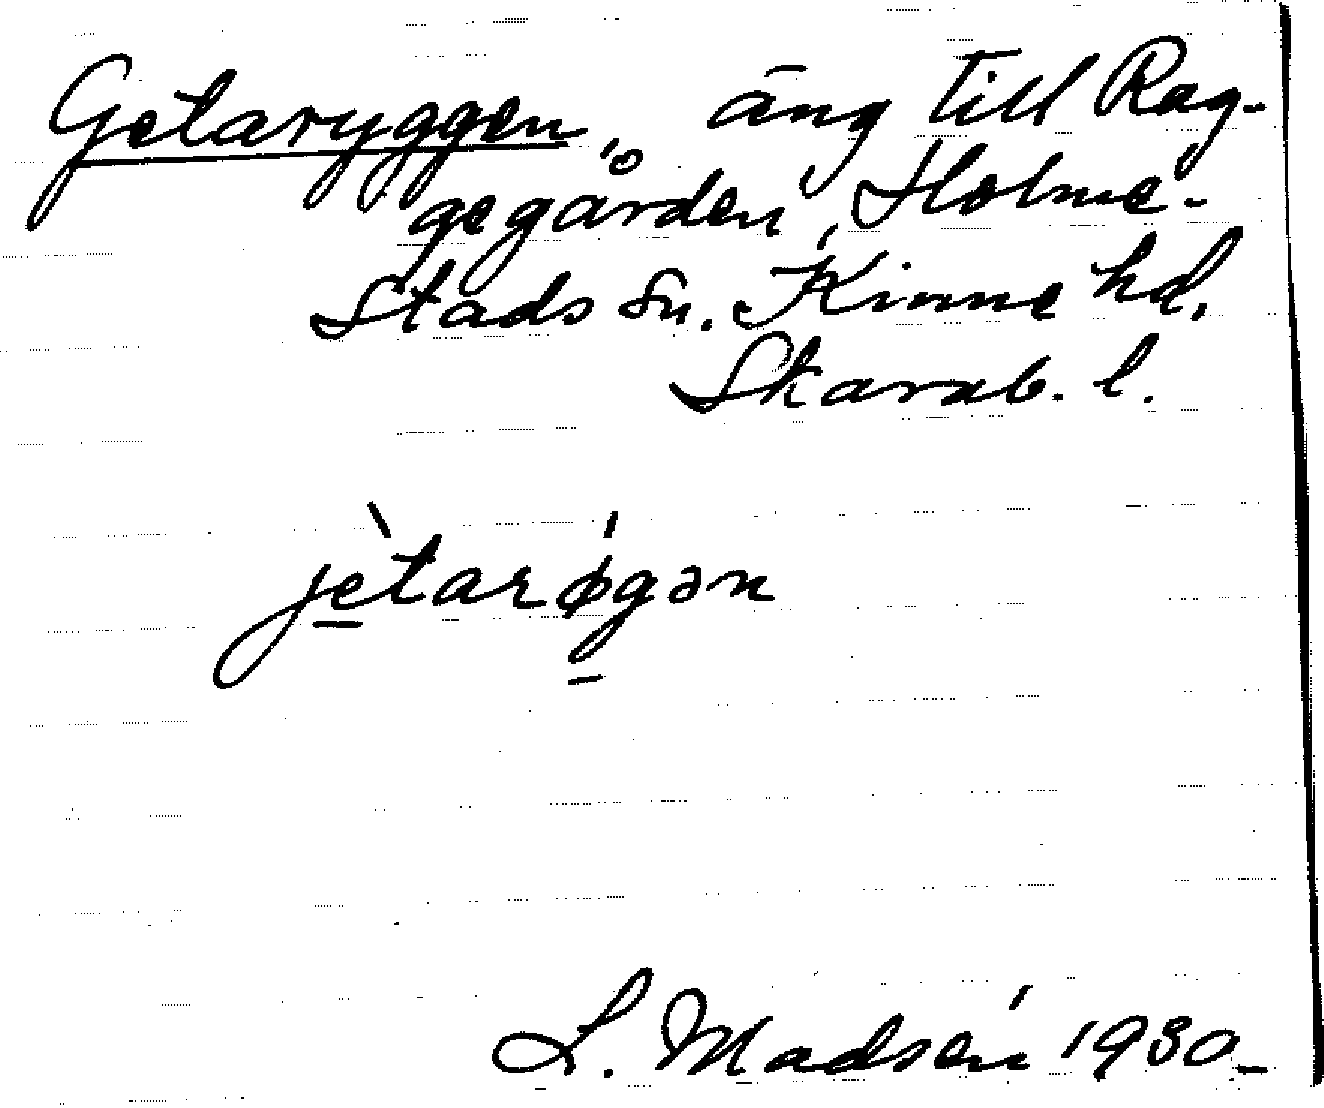 Getaryggen, äng till Rag-
gegården, Holme-
stads sn. Kinne hd,
Skarab. l.
jètarǿgən
L. Madsén 1930